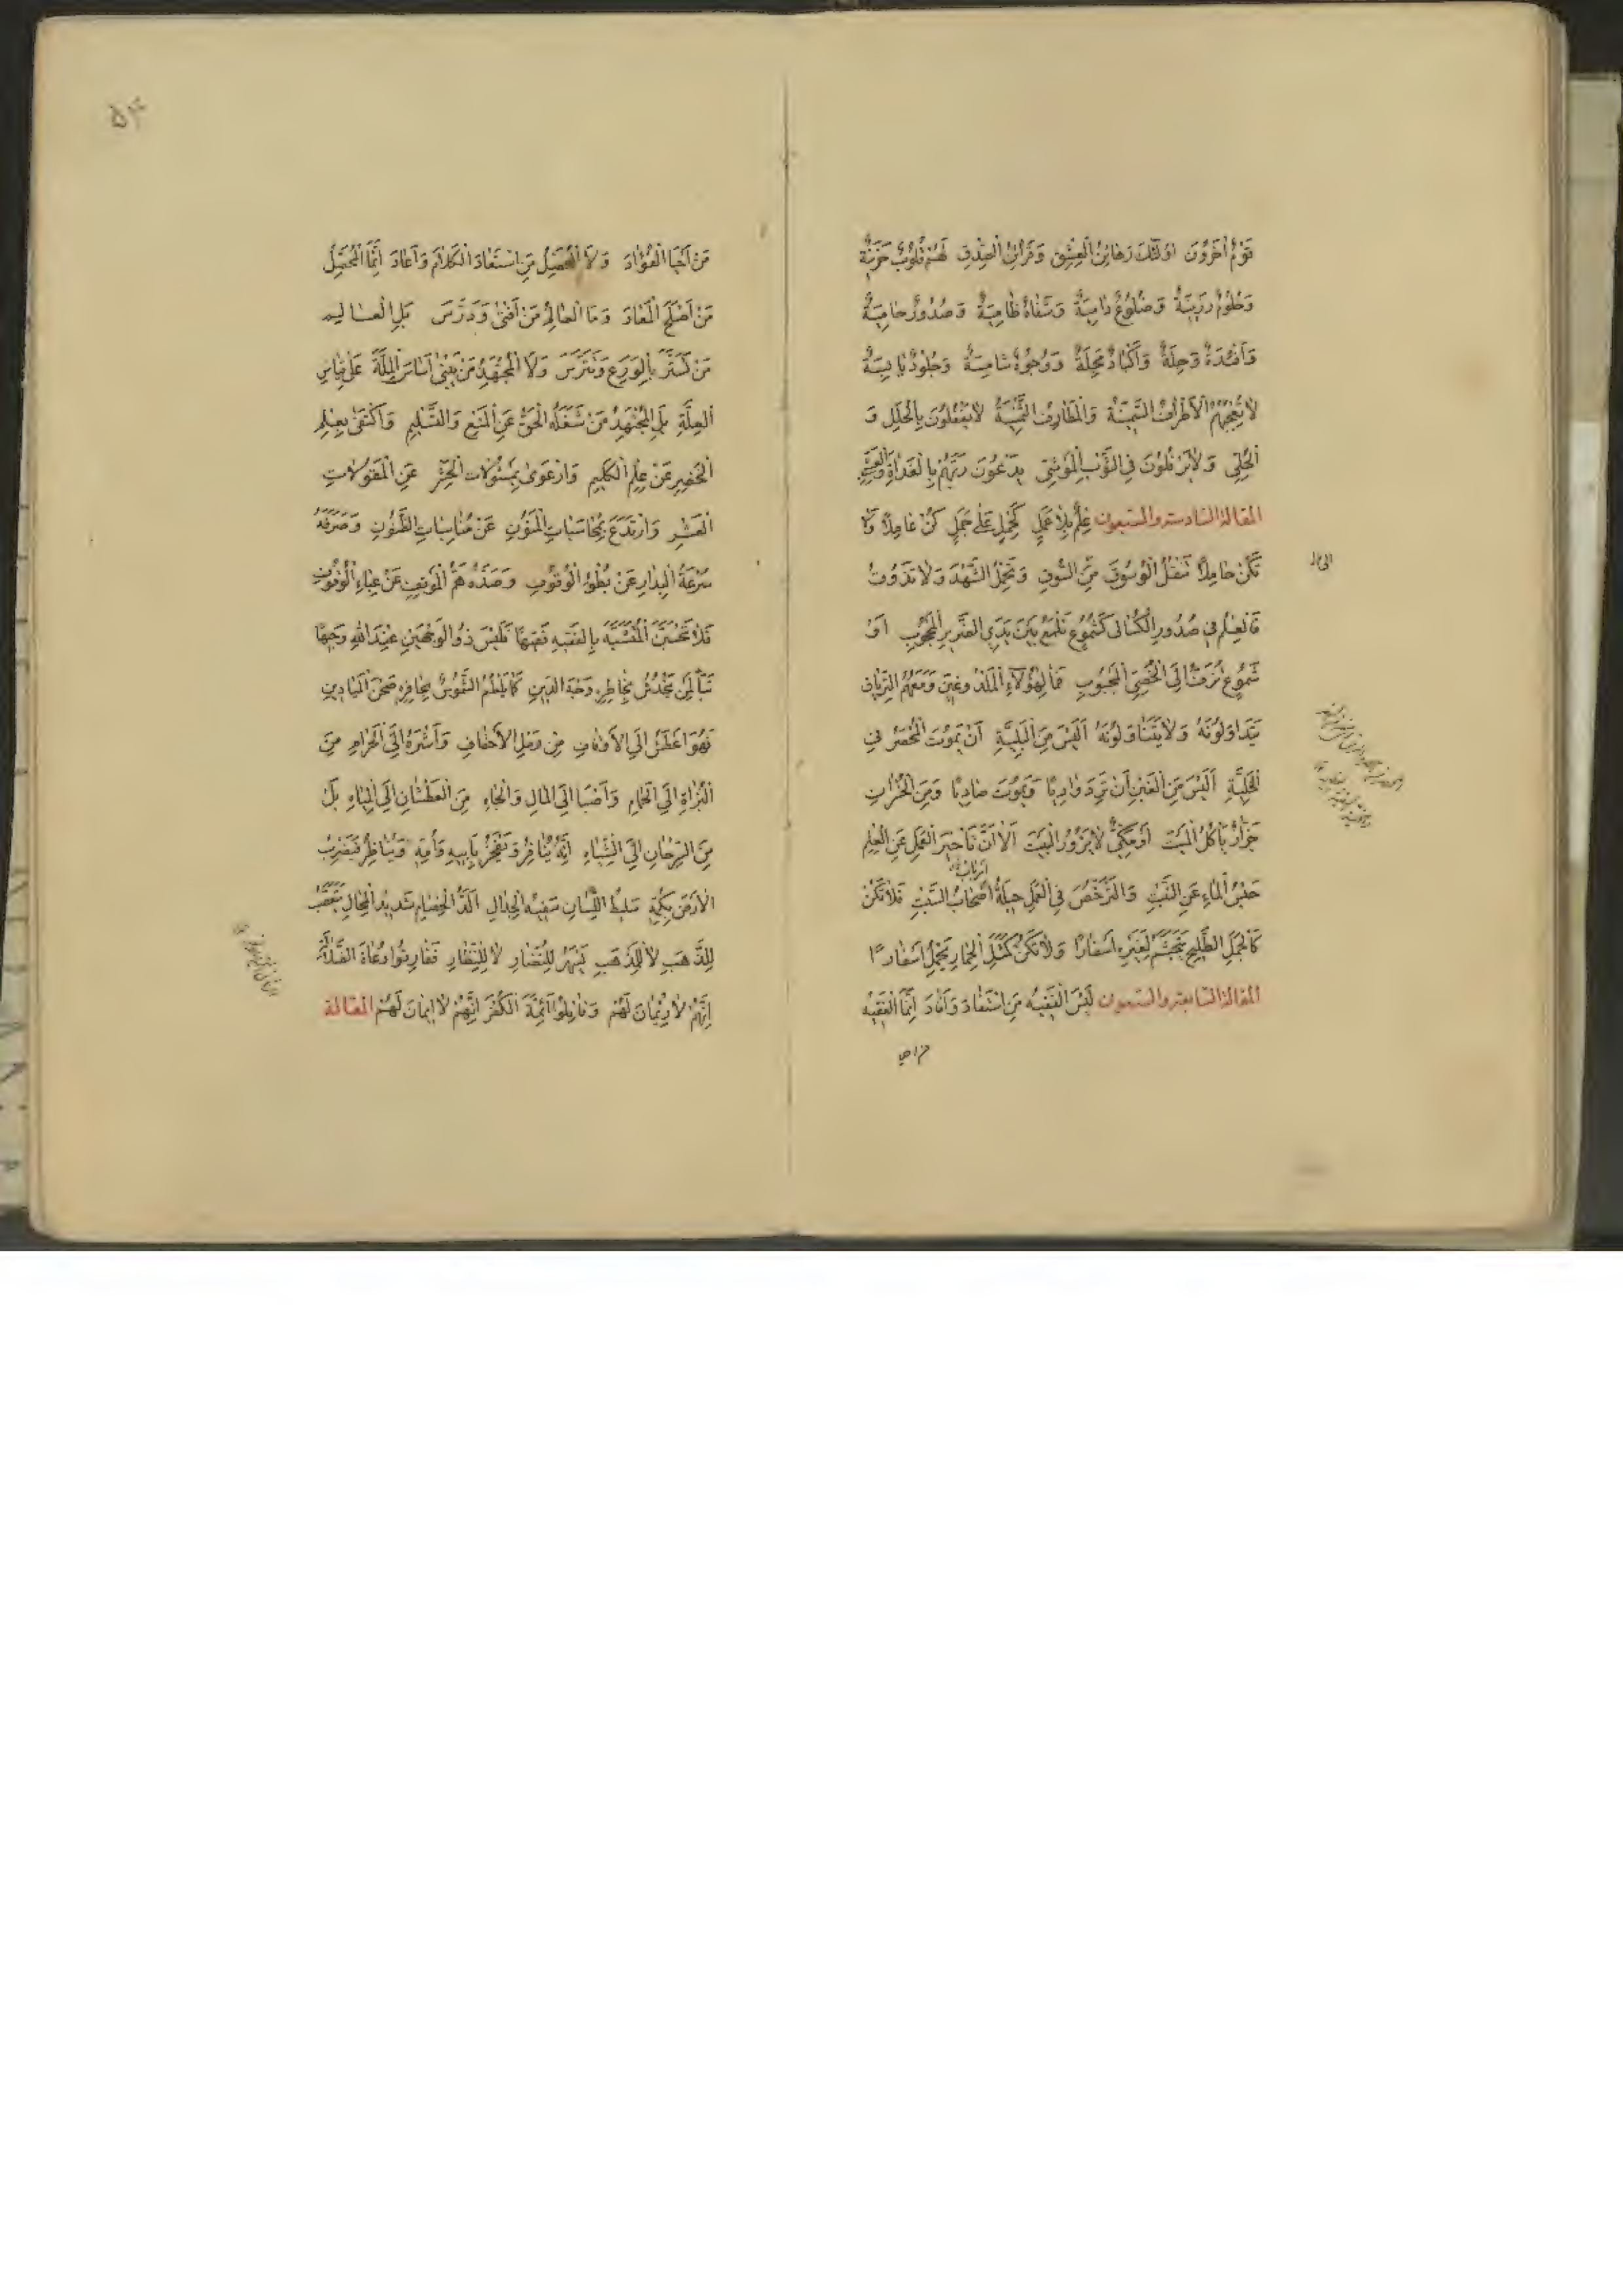 قَوْمٌ آخَرُونَ اُولٰئِكَ رَهَائِنُ الْعِشْقِ وَقَرَائِنُ الصِّدْقِ لَهُمْ قُلُوبٌ حَزِنَةٌ
وَضُلُوعٌ دَامِيَةٌ وَشِفَاهٌ ظَامِيَةٌ وَصُدُورٌ حَامِيَةٌ
وَاَفْئِدَةٌ وَجِلَةٌ وَاَكْبَادٌ وَوُجُوهٌ شَاحِبَةٌ وَجُلُودٌ يَابِسَةٌ
لَا تُعْجِبُهُمُ الْاَطْرَافُ السَّمِينَةُ وَالْمَطَارِفُ الثَّمِينَةُ لَا يَحْفِلُونَ بِالْحُلَلِ وَ
الْحُلِيِّ وَلَا يَرْفُلُونَ فِي الثَّوْبِ الْمَوْشِيِّ يَدْعُونَ رَبَّهُمْ بِالْغَدَاةِ وَالْعَشِيِّ
المقالة السادسة والسبعون عِلْمٌ بِلَا عَمَلٍ كَحِمْلٍ عَلَى جَمَلٍ كُنْ عَامِلًا وَلَا
تَكُنْ حَامِلًا تَنْقُلُ الْوُسُوقَ مِنَ السُّوقِ وَتَحْمِلُ الشَّهْدَ وَلَا تَذُوقُ
فَالْعِلْمُ فِي صُدُورِ الْكُسَالَى كَشُمُوعٍ تَلْمَعُ بَيْنَ يَدَيِ الضَّرِيرِ الْمَحْجُوبِ اَوْ
شَمُوعٍ تُزَفُّ اِلَى الْخَصِيِّ الْمَجْبُوبِ فَمَا لِهٰؤُلَاءِ الْمَلْدُوغِينَ وَمَعَهُمُ التِّرْيَاقُ
يَتَدَاوَلُونَهُ وَلَا يَتَنَاوَلُونَهُ اَلَيْسَ مِنَ الْبَلِيَّةِ اَنْ يَمُوتَ الْمُحْصَرُ فِي
اَلَيْسَ مِنَ الْغَبْنِ اَنْ تَرِدَ وَادِيًا وَتَمُوتَ صَادِيًا وَمِنَ الْخُسْرَانِ
جَزَّارٌ يَأْكُلُ الْمَيْتَ اَوْ مَكِّيٌّ لَا يَزُورُ الْبَيْتَ اَلَا اَنَّ تَأْخِيرَ الْعَمَلِ عَنِ الْعِلْمِ
ارباب
حَبْسُ الْمَاءِ عَنِ النَّبْتِ وَالتَّرَخُّصَ فِي الْعَمَلِ حِيلَةُ اَصْحَابِ السَّبْتِ فَلَا تَكُنْ
كَالْجَمَلِ الطَّلِيحِ يَتَجَشَّمُ لِغَيْرِهِ اَسْفَارًا وَلَا تَكُنْ كَمَثَلِ الْحِمَارِ يَحْمِلُ اَسْفَارًا
المقالة السابعة والسبعون لَيْسَ الْفَقِيهُ مَنِ اسْتَفَادَ وَاَفَادَ اِنَّمَا الْفَقِيهُ
من احيا
۵۴
مَنْ اَحْيَا الْفُؤَادَ وَلَا الْمُحَصِّلُ مَنِ اسْتَعَادَ الْكَلَامَ وَاَعَادَ اِنَّمَا الْمُحَصِّلُ
مَنْ اَصْلَحَ الْمَعَادَ وَمَا الْعَالِمُ مَنْ اَفْتٰى وَدَرَّسَ بَلِ الْعَالِمُ
مَنْ تَسَتَّرَ بِالْوَرَعِ وَتَتَرَّسَ وَلَا الْمُجْتَهِدُ مَنْ بَنٰى اَسَاسَ الْمِلَّةِ عَلَى قِيَاسِ
الْعِلَّةِ بَلِ الْمُجْتَهِدُ مَنْ شَغَلَهُ الْحَقُّ عَنِ الْمَنْعِ وَالتَّسْلِيمِ وَاكْتَفٰى بِعِلْمِ
الْخَضِرِ عَنْ عِلْمِ الْكَلِيمِ وَارْعَوٰى بِمَسْئُولَاتِ الْحَشْرِ عَنِ الْمَقُولَاتِ
الْعَشْرِ وَارْتَدَعَ بِمُحَاسَبَاتِ الْمَنُونِ عَنْ مُنَاسَبَاتِ الظُّنُونِ وَصَرَفَهُ
سُرْعَةُ الْبِدَارِ عَنْ بُطُوءِ الْوُقُوبِ وَصَدَّهُ هَمُّ الْمَوْقِفِ عَنْ
فَلَا تَحْسَبَنَّ الْمُتَشَبِّهَ بِالْفَقِيهِ فَقِيهًا فَلَيْسَ ذُو الْوَجْهَيْنِ عِنْدَ اللّٰهِ وَجِيهًا
تَبًّا لِمَنْ يَخْدُشُ بِخَاطِرِهِ وَجْهَ الدِّينِ كَمَا يَلْطِمُ الشَّمُوسُ بِحَافِرِهِ صَحْنَ الْمَيَادِينِ
فَهُوَ اَعْطَشُ اِلَى الْاَوْقَافِ مِنْ رَمْلِ الْاَحْقَافِ وَاَشْرَهُ اِلَى الْحَرَامِ مِنَ
الْبُزَاةِ اِلَى الْحَمَامِ وَاَصْبَا اِلَى الْمَالِ وَالْجَاهِ مِنَ الْعَطْشَانِ اِلَى الْمِيَاهِ بَلْ
مِنَ السِّرْحَانِ اِلَى الشِّيَاهِ اِنَّهُ يُنَافِرُ وَيَفْخَرُ بِاَبِيهِ وَاُمِّهِ وَيُنَاظِرُ فَيَضْرِبُ
الْاَرْضَ بِكُمِّهِ سَلِيطُ اللِّسَانِ سَفِيهُ الْجِدَالِ اَلَدُّ الْخِصَامِ شَدِيدُ الْمِحَالِ يَتَعَصَّبُ
لِلذَّهَبِ لَا لِلْمَذْهَبِ يَسْهَرُ لِلنُّضَارِ لَا لِلنُّظَّارِ فَفَارِقُوا دُعَاةَ الضَّلَالَةِ
اِنَّهُمْ لَا اَيْمَانَ لَهُمْ وَقَاتِلُوا اَئِمَّةَ الْكُفْرِ اِنَّهُمْ لَا اِيمَانَ لَهُمْ المقالة